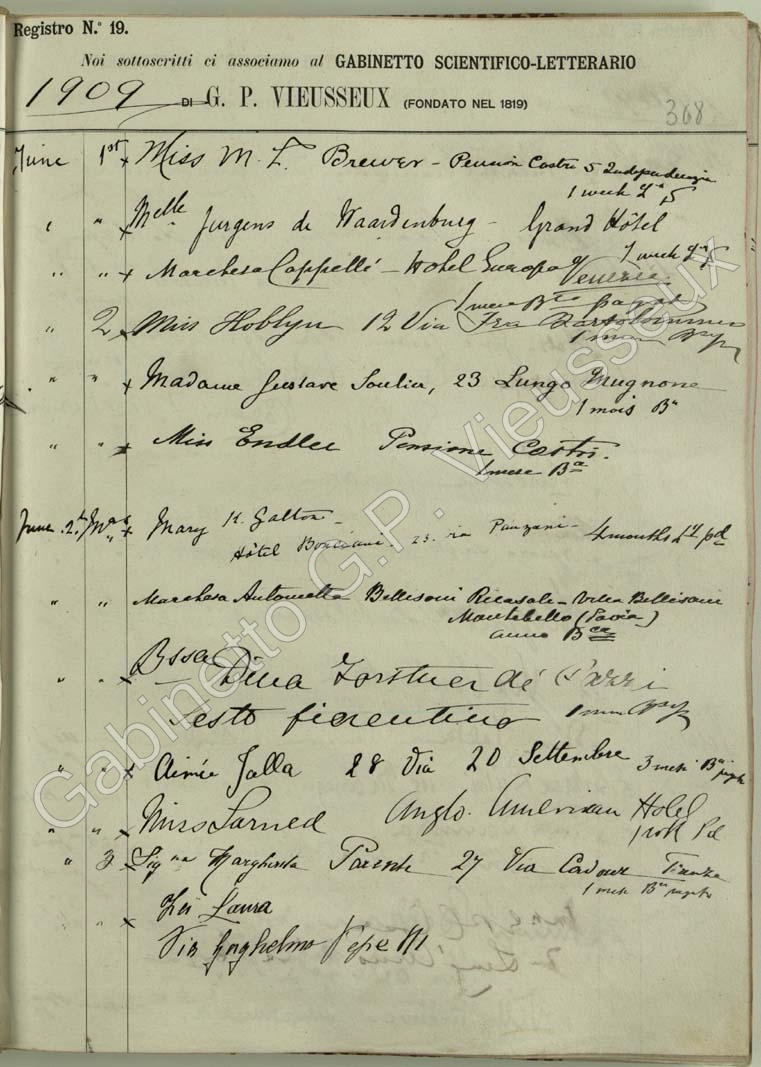 Registro N.º 19.
Noi sottoscritti ci associamo al GABINETTO SCIENTIFICO-LETTERARIO
1909 DI G. P. VIEUSSEUX (FONDATO NEL 1819)
368
June 1st x Miss M. L. Brewer - Pension Castri 5 Independenzia
1 week
" x Melle Jurgens de Waardenburg - Grand Hôtel
1 week
" " x Marchesa Cappelli - Hotel Europa
Venezia
1 mese
" 2 x Miss Hoblyn 12 Via Fra Bartolommeo
1 mese
" " x Madame Gustave Soulier, 23 Lungo Mugnone
1 mois Bn
" " x Miss Endlee Pensione Castri.
1 mese Ba
June 2 x Mary H. Galton -
Hôtel Bonciani. 23. via Panzani - 4 months pd
" " Marchesa Antonietta Bellisomi Ricasoli - Villa Bellisomi
Montebello (Pavia)
anno
" " x Bssa Dina Forstner de' Pazzi
Sesto fiorentino 1 mese
" " x Aimée Jalla 28 Via 20 Settembre 3 mesi
" " x Miss Larned Anglo. American Hotel
" 3 x Signa Margherita Parenti 27 Via Cavour Firenze
1 mese
" x Zei Laura
Via Guglielmo Pepe
Gabinetto G.P. Vieusseux